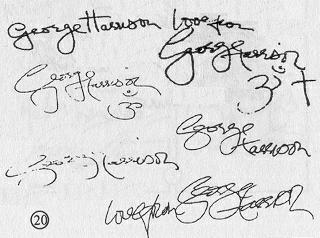 George Harrison love from
George Harrison
ॐ †
George Harrison
ॐ
George
Harrison
George Harrison
20
love from George
Harrison